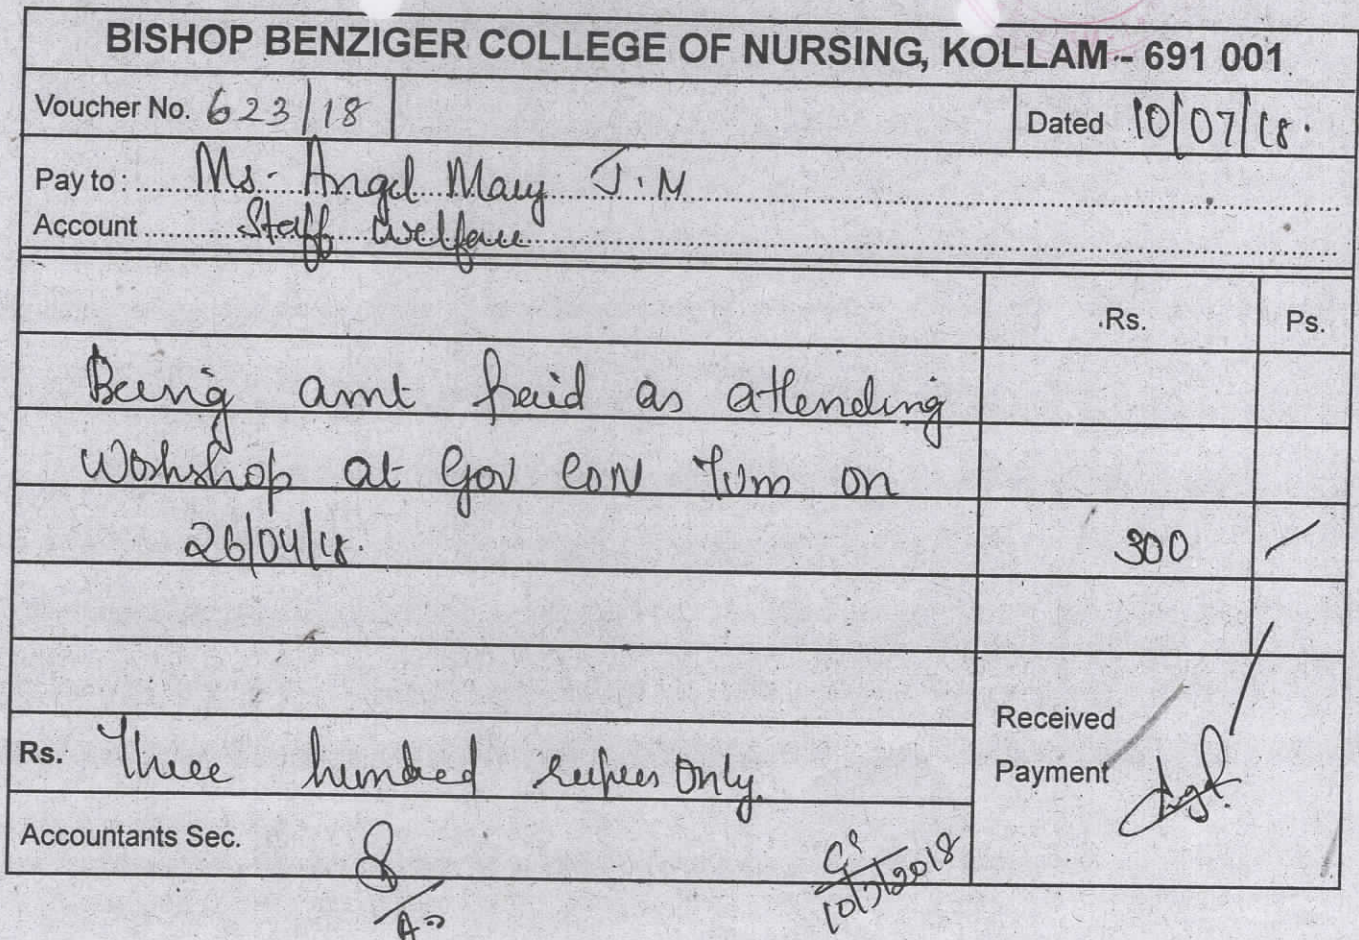 BISHOP BENZIGER COLLEGE OF NURSING, KOLLAM - 691 001
Voucher No. 623/18 Dated 10/07/18.
Pay to : Ms. Angel Mary J.M
Account Staff welfare
Rs. Ps.
Being amt paid as attending
Workshop at Gov CON Tvm on
26/04/18. 300 /
Received
Rs. Three hundred rupees Only. Payment Angel
Accountants Sec.
10/7/2018